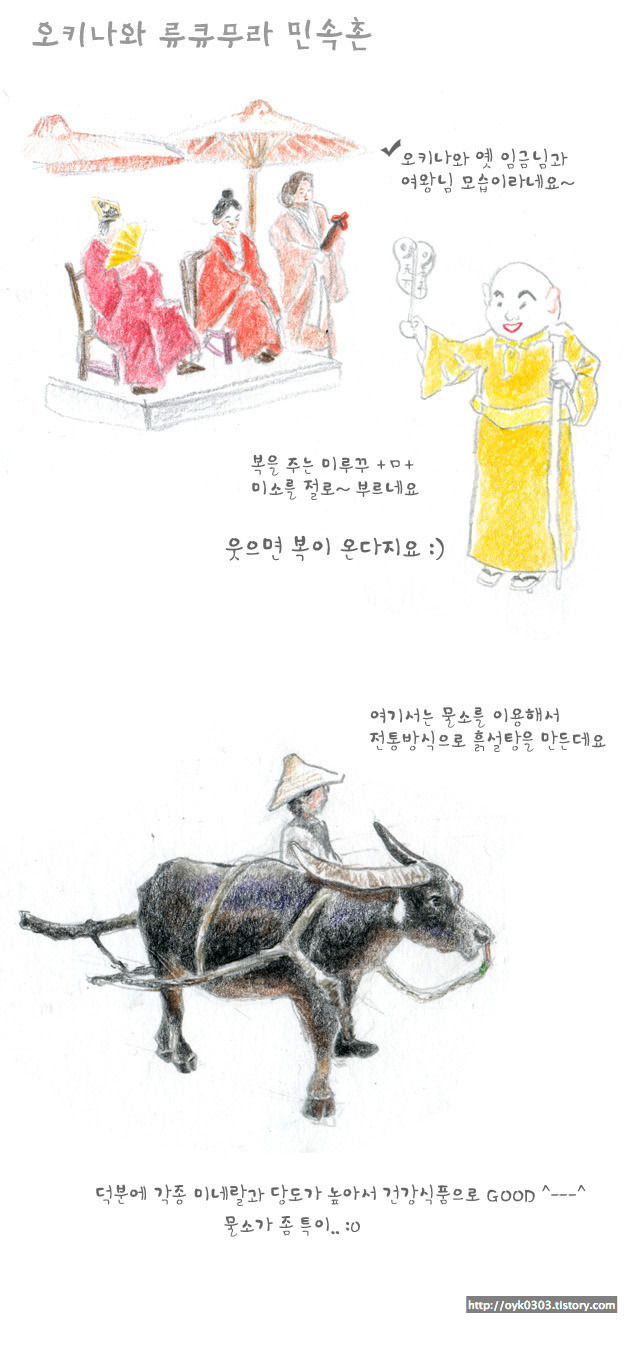 오키나와 류큐무라 민속촌
✔오키나와 옛 임금님과
여왕님 모습이라네요~
복을 주는 미루꾸 +ㅁ+
미소를 절로~ 부르네요
웃으면 복이 온다지요 :)
여기서는 물소를 이용해서
전통방식으로 흙설탕을 만든데요
덕분에 각종 미네랄과 당도가 높아서 건강식품으로 GOOD ^---^
물소가 좀 특이.. :o
http://oyk0303.tistory.com